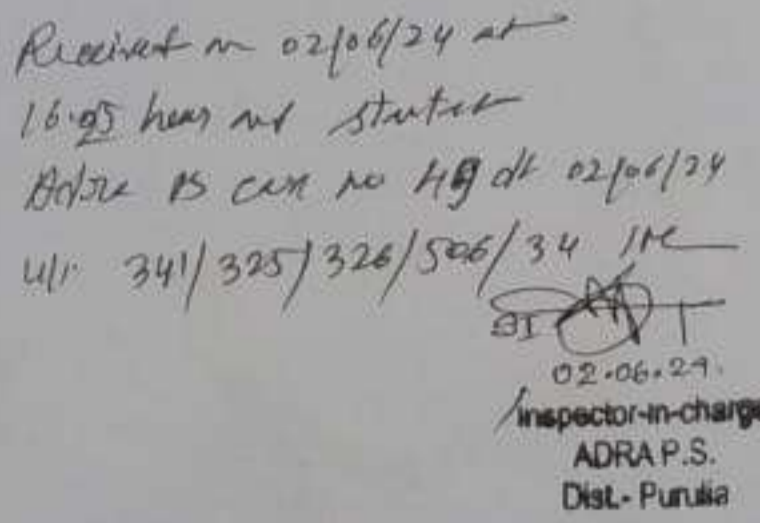 Received on 02/06/24 at
16.05 hrs and started
Adra PS case no 49 dt 02/06/24
u/s. 341/325/326/506/34 IPC
SI
02.06.24.
Inspector-in-charge
ADRA P.S.
Dist.- Purulia